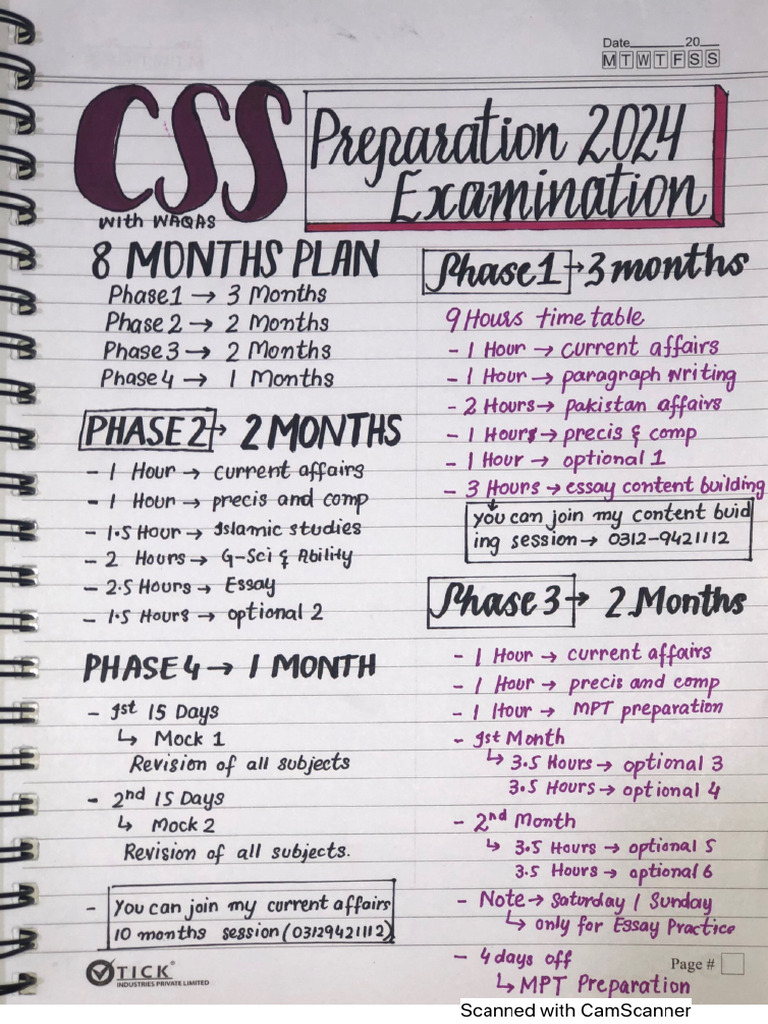 Date 20
M T W T F S S
CSS
With WAQAS
Preparation 2024
Examination
8 MONTHS PLAN
Phase 1 → 3 Months
Phase 2 → 2 Months
Phase 3 → 2 Months
Phase 4 → 1 Months
PHASE 2 → 2 MONTHS
- 1 Hour → current affairs
- 1 Hour → precis and comp
- 1.5 Hour → Islamic studies
- 2 Hours → G-Sci & Ability
- 2.5 Hours → Essay
- 1.5 Hours → optional 2
PHASE 4 → 1 MONTH
- 1st 15 Days
↳ Mock 1
Revision of all subjects
- 2nd 15 Days
↳ Mock 2
Revision of all subjects.
- You can join my current affairs
10 months session (03129421112)
Phase 1 → 3 months
9 Hours time table
- 1 Hour → current affairs
- 1 Hour → paragraph writing
- 2 Hours → pakistan affairs
- 1 Hours → precis & comp
- 1 Hour → optional 1
- 3 Hours → essay content building
you can join my content buid
ing session → 0312-9421112
Phase 3 → 2 Months
- 1 Hour → current affairs
- 1 Hour → precis and comp
- 1 Hour → MPT preparation
- 1st Month
↳ 3.5 Hours → optional 3
3.5 Hours → optional 4
- 2nd Month
↳ 3.5 Hours → optional 5
3.5 Hours → optional 6
- Note → Saturday / Sunday
↳ only for Essay Practice
- 4 days off
↳ MPT Preparation
TICK®
INDUSTRIES PRIVATE LIMITED
Page #
Scanned with CamScanner